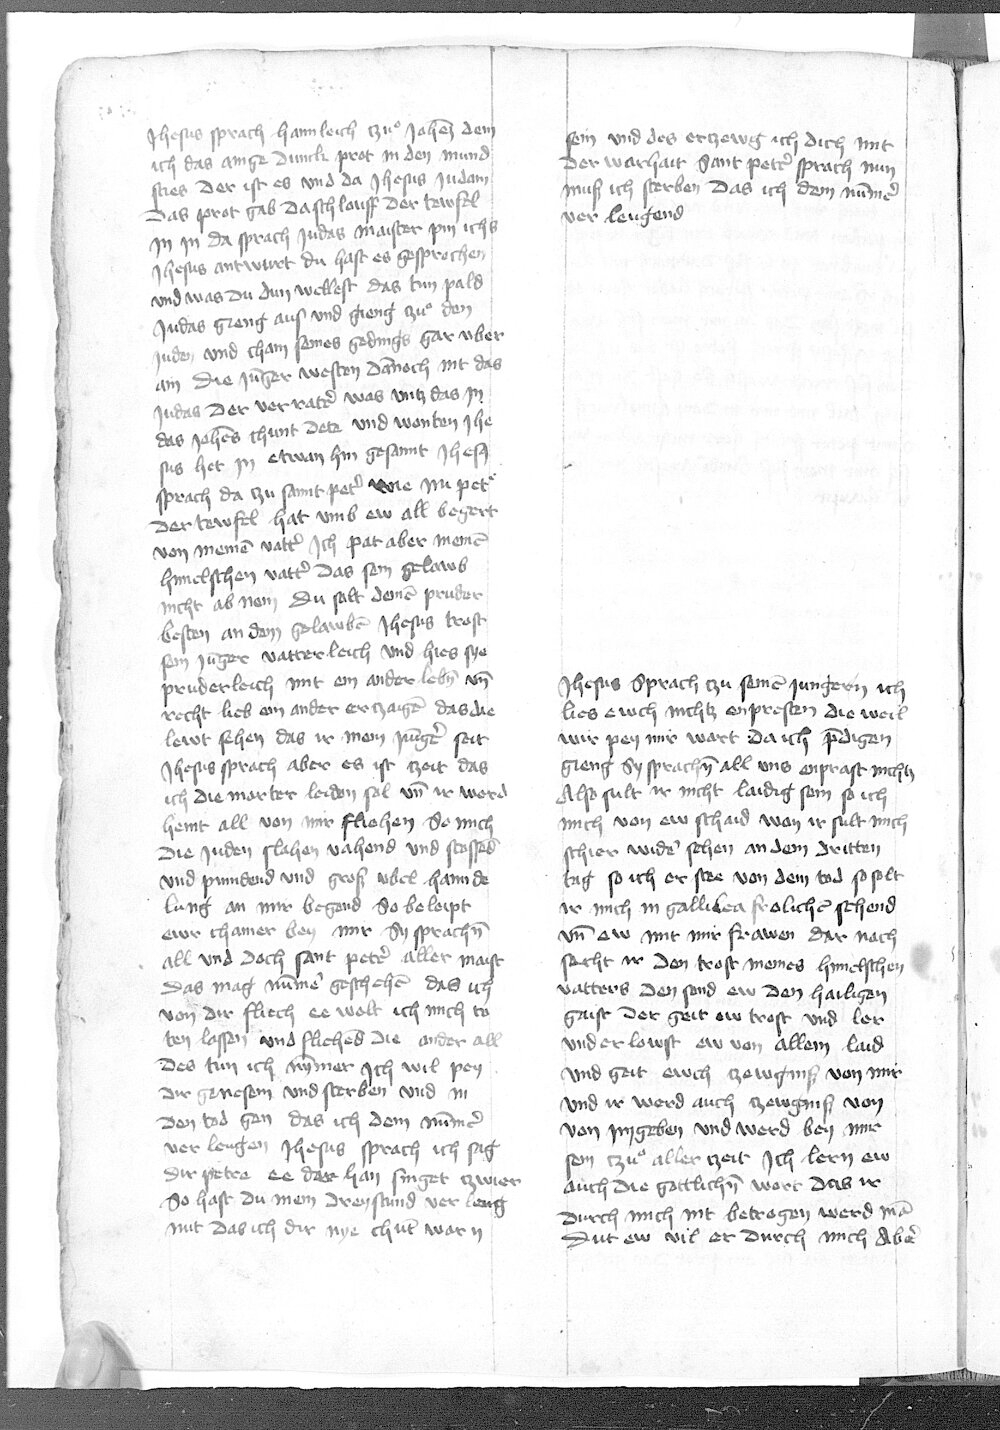 Jhesus sprach hannleich czuͦ Johen̄ dem
ich das ainge dunck prot in den mund
sties Der ist es vnd da Jhesus Judam
Das prot gab Da schlouff der tewfel
in in da sprach Judas maister pin ichs
Jhesus antwurt du hast es gesprochen
vnd was du dun wellest das tun pald
Judas gieng aus vnd gieng czuͦ den
Juden vnd cham seines gedings gar vber
ain Die Jūger westen dānoch nit das
Judas der verrater̄ was vntz das in
das Johēs chunt dett vnd wonten Jhe
sus het in etwan hin gesannt Jhesꝯ
sprach da czu sannt peter̄ wie nu pet'
Der tewfel hat vmb ew all begert
von meinē vatter̄ Ich pat aber meinē
himelschen vatter̄ das sein gelawb
nicht ab nem Du solt deinē pruder
besten an dem gelawbē Jhesus trost
sein Jūger vatterleich vnd hies sye
pruderleich mit ein ander lebn̄ vn̄
recht lieb ein ander erczaigē das die
lewt sehen das ir mein Jūger̄ seit
Jhesus sprach aber es ist czeit das
ich die marter leiden sol vn̄ ir werd
heint all von mir fliehen So mich
Die Juden slahen vahend vnd stossēd
vnd pindend vnd gros vbel hannde
lung an mir begend So beleipt
ewr chainer bey mir Sy sprachn̄
all vnd doch sant peter̄ aller maist
Das mag nūmer̄ geschehē das ich
von dir fliech ee wolt ich mich to
ten lassen vnd fliehēd die ander all
Des tun ich nȳmer Ich wil pey
dir genesen vnd sterben vnd in
Den tod gen das ich dein nūmer̄
verleugen Jhesus sprach ich sag
dir petre ee der han singet czwier
So hast du mein dreystund verleug
nit das ich dir nye chūt warn
sein vnd des erczewg ich dich mit
der warhait Sant peter̄ sprach nun
mus ich sterben das ich dein nūmer̄
verleugend
Jhesus Sprach czu seinē jungern ich
lies ewch nichtz enpresten die weil
wir pey mir wart Da ich p̄digen
gieng Sy sprachn̄ all vns enprast nichtz
Also sult ir nicht laidig sein so ich
mich von ew schaid won ir sult mich
schier wider̄ sehen an dem dritten
tag so ich er stee von dem tod so solt
ir mich in gallilea frolichē sehend
vn̄ ew mit mir frawen dar noch
secht ir den trost meines himelschen
vatters den send ew den hailigen
gaist der geit ew trost vnd ler
vnd erlowst ew von allem laid
vnd geit ewch czewgnuß von mir
vnd ir werd auch czewgnuß von
von mir geben vnd werd bey mir
sein czuͦ aller czeit Ich lern ew
auch die gottlichn̄ wort das ir
durch mich nit betrogen werd mā
dut ew vil er durch mich Aber̄